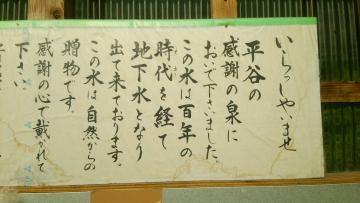 いらっしゃいませ
平谷の
感謝の泉に
おいで下さいました。
この水は百年の
時代を経て
地下水となり
出て来ております。
この水は自然からの
贈物です。
感謝の心で戴かれて
下さい。